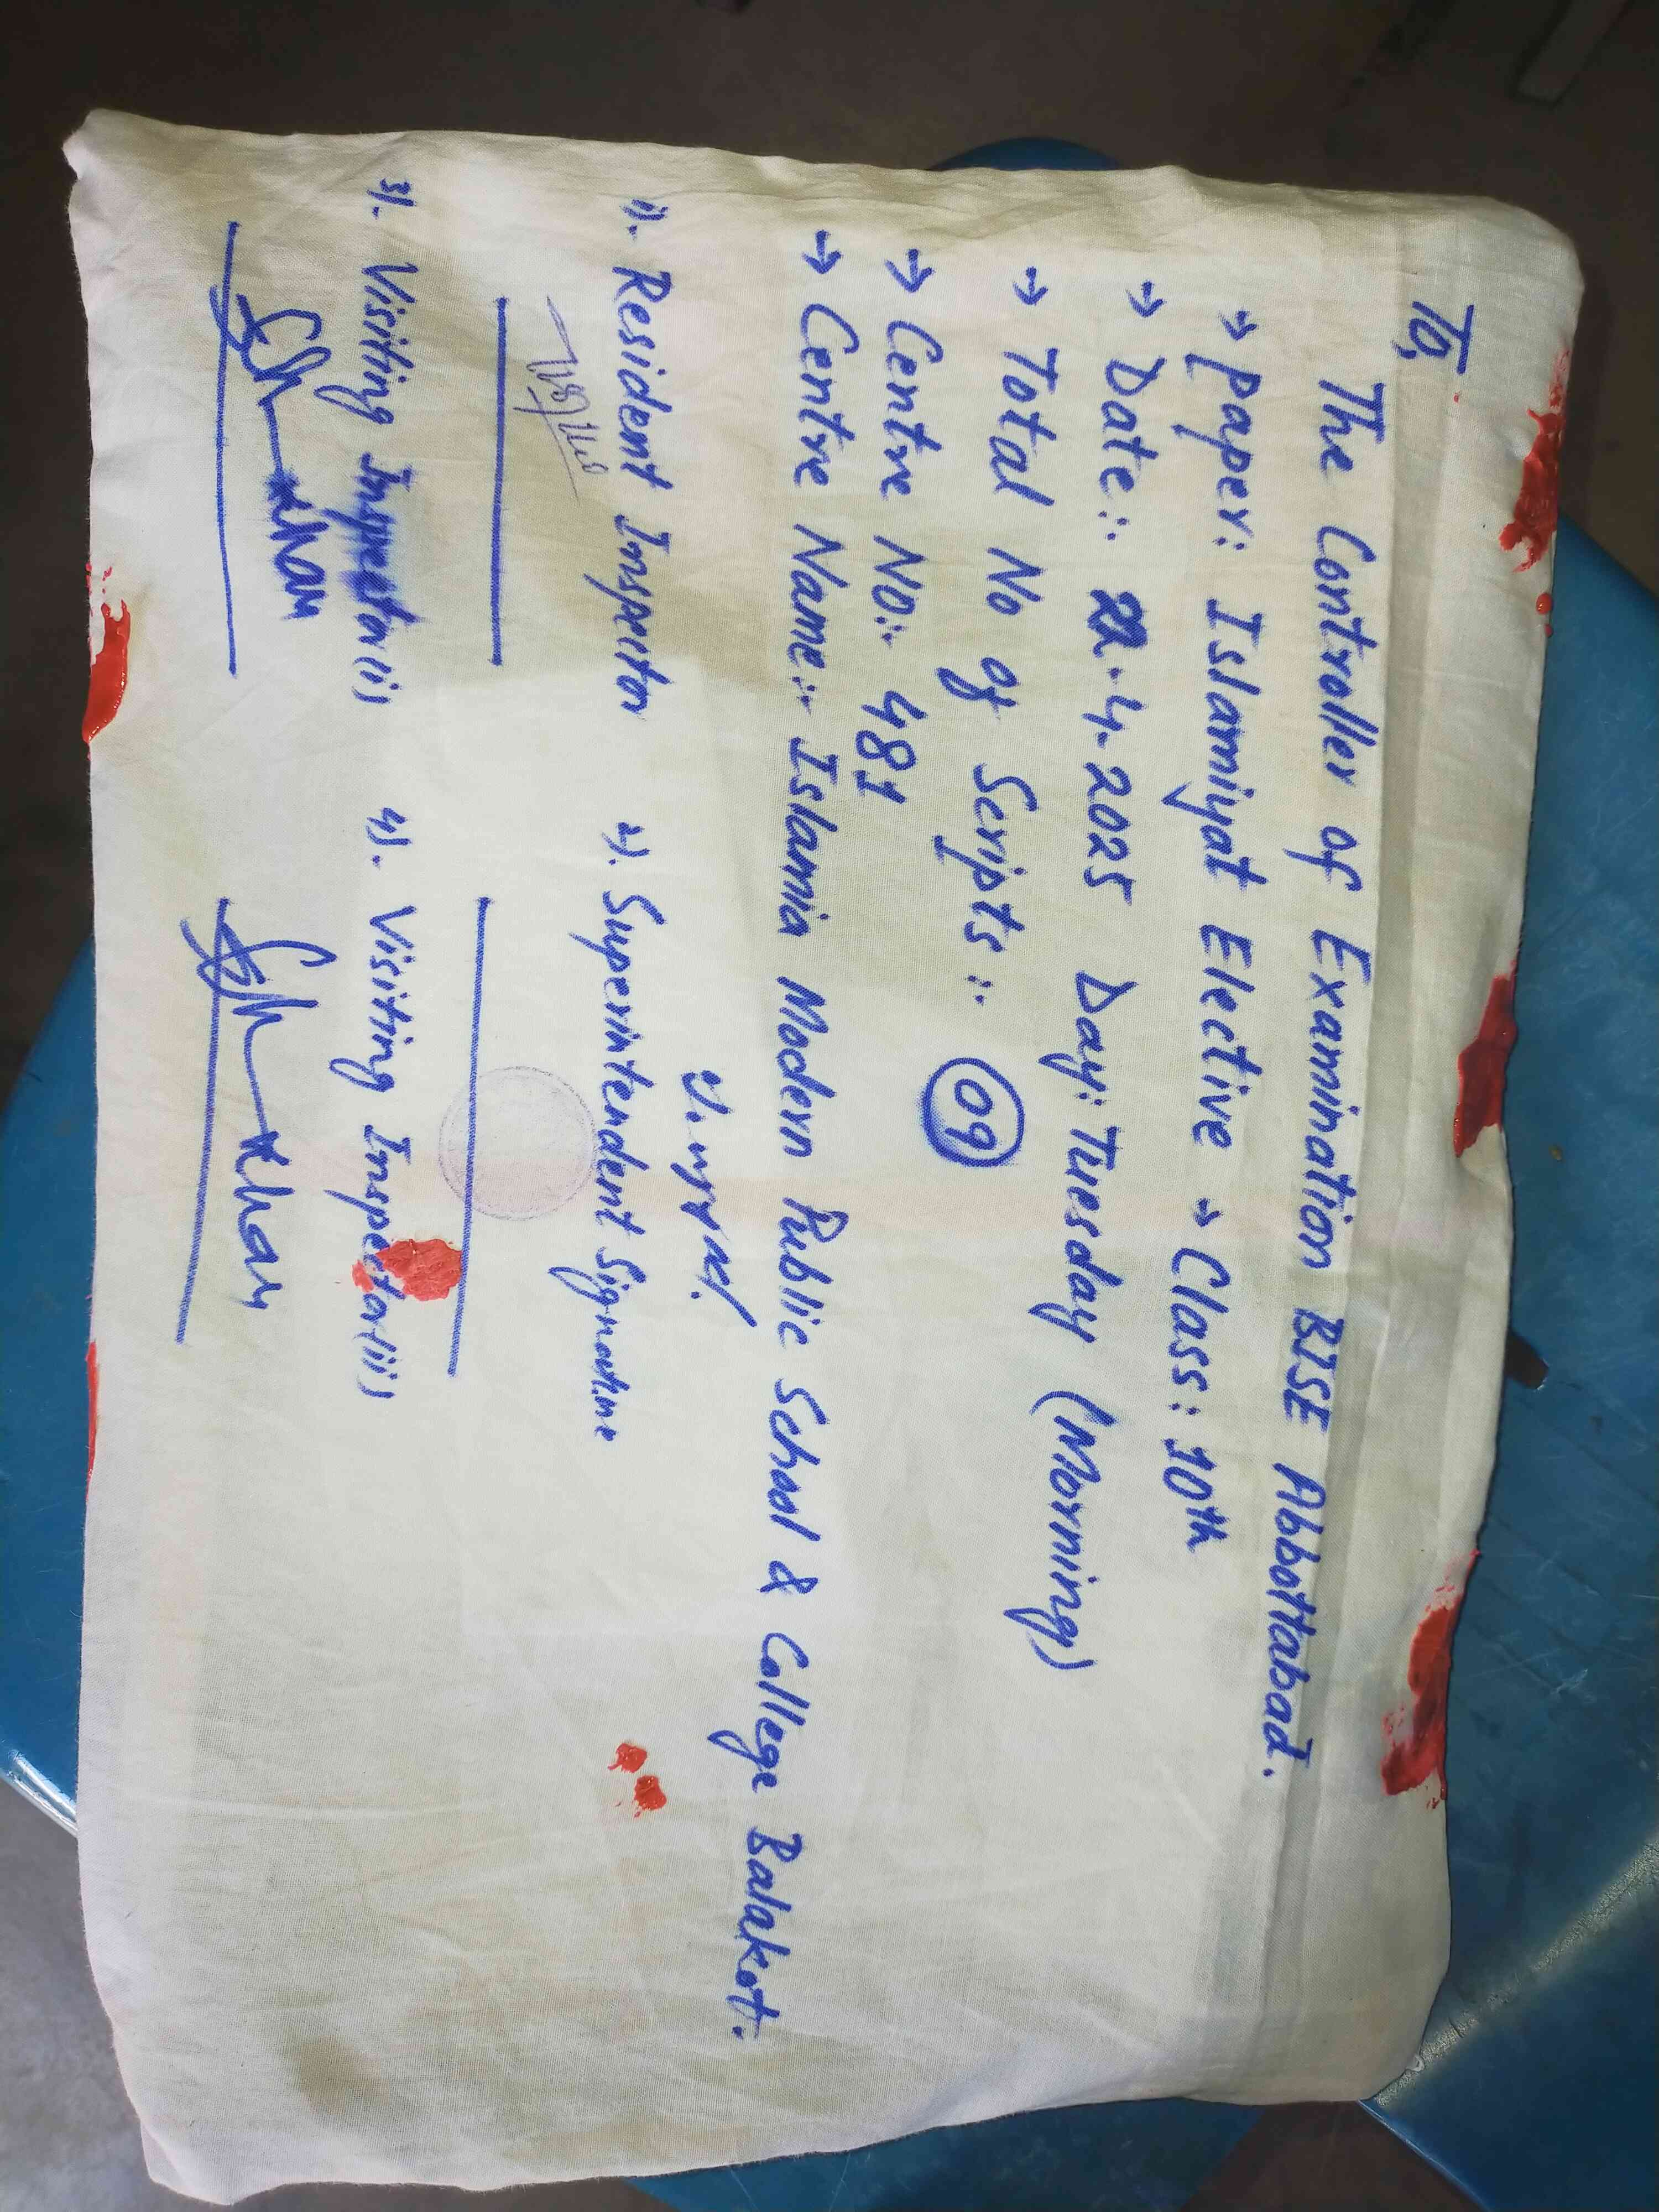 To,
The Controller of Examination BISE Abbottabad.
→ Paper: Islamiyat Elective → Class: 10th
→ Date:. 22.4.2025 Day: Tuesday (Morning)
→ Total No of Scripts:. 09
→ Centre NO:. 481
→ Centre Name:. Islamia Modern Public School & College Balakot.
1). Resident Inspector 2). Superintendent Signature
3). Visiting Inspector (i) 4). Visiting Inspector (ii)
Khan Khan